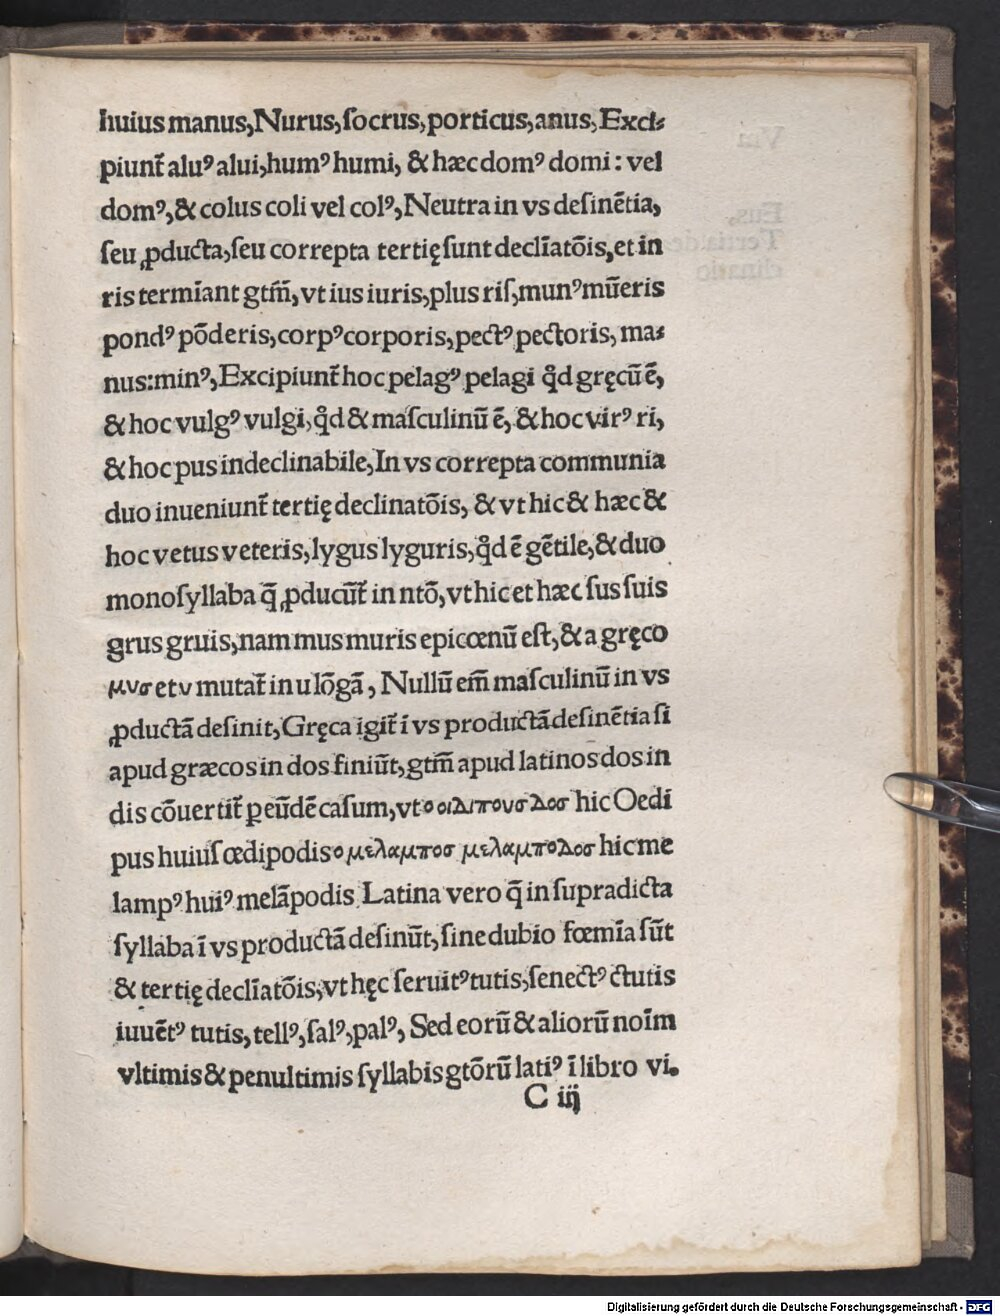 huius manus, Nurus, ſocrus, porticus, anus, Exci⸗
piunt᷑ aluꝰ alui, humꝰ humi, & hæc domꝰ domi : vel
domꝰ, & colus coli vel colꝰ, Neutra in vs deſinẽtia,
ſeu ꝓducta, ſeu correpta tertię ſunt declĩatõis, et in
ris termĩant gtm̃, vt ius iuris, plus riſ, munꝰ mũeris
pondꝰ põderis, corpꝰ corporis, pectꝰ pectoris, ma⸗
nus: minꝰ, Excipiunt᷑ hoc pelagꝰ pelagi qd̉ gręcũ ẽ,
& hoc vulgꝰ vulgi, qd̉ & maſculinũ ẽ, & hoc virꝰ ri,
& hoc pus indeclinabile, In vs correpta communia
duo inueniunt᷑ tertię declinatõis, & vt hic & hæc &
hoc vetus veteris, lygus lyguris, qd̉ ẽ gẽtile, & duo
monoſyllaba q̃ ꝓducũt᷑ in ntõ, vt hic et hæc ſus ſuis
grus gruis, nam mus muris epicœnũ eſt, & a gręco
μυσ et υ mutat᷑ in u lõgã, Nullũ em̃ maſculinũ in vs
ꝓductã deſinit, Gręca igit᷑ ĩ vs productã deſinẽtia ſi
apud græcos in dos finiũt, gtm̃ apud latinos dos in
dis cõuertit᷑ ꝑ eũdẽ caſum, vt ο οιΔιπουσ Δοσ hic Oedi
pus huiuſ œdipodis ο μελαμποσ μελαμποΔοσ hic me
lampꝰ huiꝰ melãpodis Latina vero q̃ in ſupradicta
ſyllaba ĩ vs productã deſinũt, ſine dubio fœmĩa ſũt
& tertię declĩatõis, vt hęc ſeruitꝰ tutis, ſenectꝰ ctutis
iuuẽtꝰ tutis, tellꝰ, ſalꝰ, palꝰ, Sed eorũ & aliorũ noĩm
vltimis & penultimis ſyllabis gtõrũ latiꝰ ĩ libro vi.
C iij
Digitalisierung gefördert durch die Deutsche Forschungsgemeinschaft - DFG